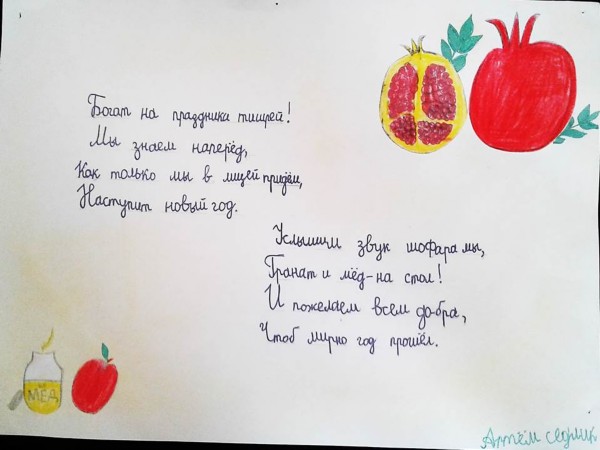 Богат на праздника тишрей!
Мы знаем наперёд,
Как только мы в лицей придём,
Наступит новый год.
Услышим звук шофара мы,
Гранат и мёд-на стол!
И пожелаем всем добра,
Чтоб мирно год прошёл.
МЁД
Артём